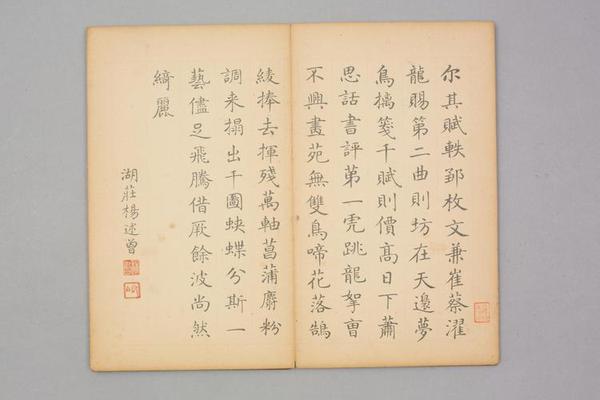 尔其賦軼鄒枚文兼崔蔡濯
龍賜第二曲則坊在天邊夢
鳥摛箋千賦則價高日下蕭
思話書評第一虎跳龍拏曹
不興畫苑無雙鳥啼花落鵠
綾捧去揮殘萬軸菖蒲麝粉
調来搨出千圖蛺蝶分斯一
藝儘足飛騰借厥餘波尚然
綺麗
湖莊楊述曾